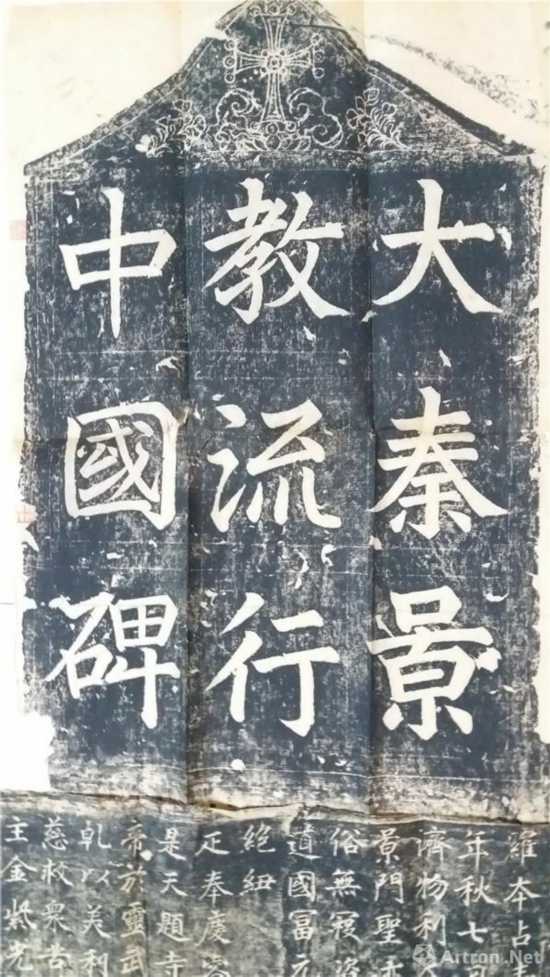 大秦景
教流行
中國碑
羅本占
年秋七
濟物利
景門聖
俗無寇
道國冨元
絶紐
疋奉慶
是天題寺
帝於靈武
乹以美利
慈救衆苦
主金紫光
Artron.Net